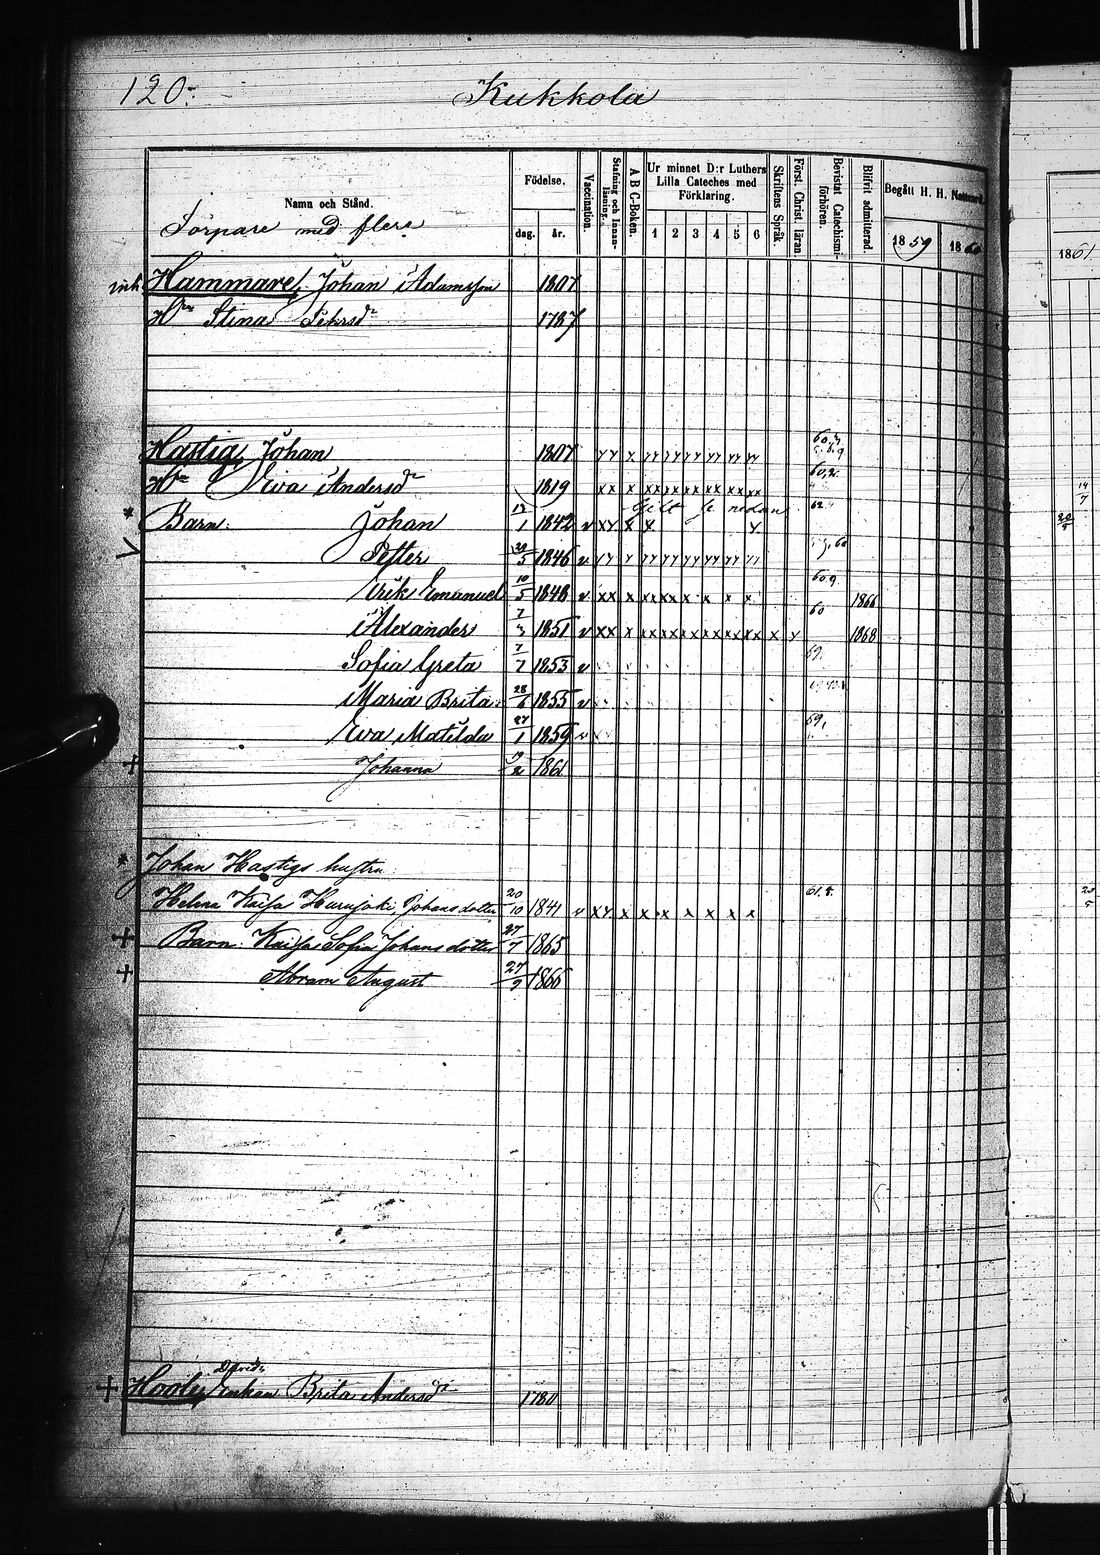 120.
Kukkola
Namn och Stånd.
Torpare med flere
Födelse.
dag. år.
Vaccination.
Stafning och Innanläsning.
A B C-Boken.
Ur minnet D:r Luthers Lilla Cateches med Förklaring.
1 2 3 4 5 6
Skriftens Språk.
Först. Christ. läran.
Bevistat Catechismiförhören.
Blifvit admitterad.
Begått H. H. Nattvard
1859 1860
1861.
Hammare, Johan Adamsson 1807
Hn Stina Pehrsdr 1787
Hastig, Johan 1807
Hn Eva Andersdr 1819
* Barn: Johan 13/1 1842 v xy x x gift se nedan 62
Petter 5 1846 v
Erik Emanuel 10/5 1848 v xx x 60.9 1866
Alexander 7/3 1851 v xx x 60 1868
Sofia Greta 7/7 1853 v
Maria Brita 28/6 1855 v
Eva Matilda 27/1 1859
+ Johanna 2 1861
* Johan Hastigs hustru
Helena Kaisa Johansdotter 20/10 1841 v xy x x x x x x x 61.8.
+ Barn: Kaisa Sofia Johansdotter 27/7 1865
+ Abram August 27/9 1866
Davids
+ Enkan Brita Andersdr 1780